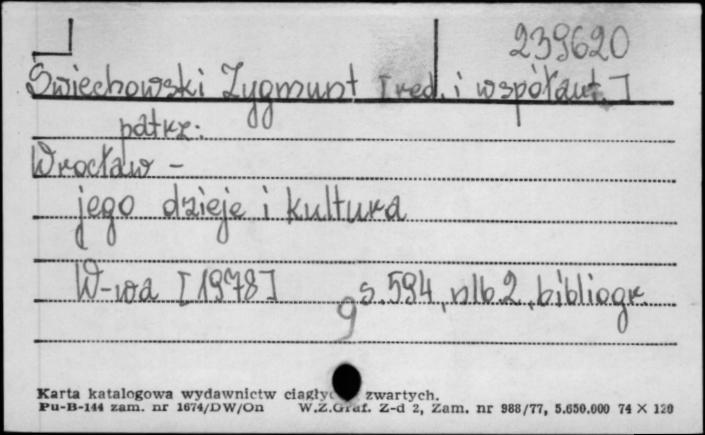 239620
Świechowski Zygmunt [red. i współaut.]
patrz:
Wrocław -
jego dzieje i kultura
W-wa [1978] s. 594, nlb. 2, bibliogr.
g
Karta katalogowa wydawnictw ciągły zwartych.
Pu-B-144 zam. nr 1674/DW/On W.Z.Graf. Z-d 2, Zam. nr 988/77, 5.650.000 74 X 120